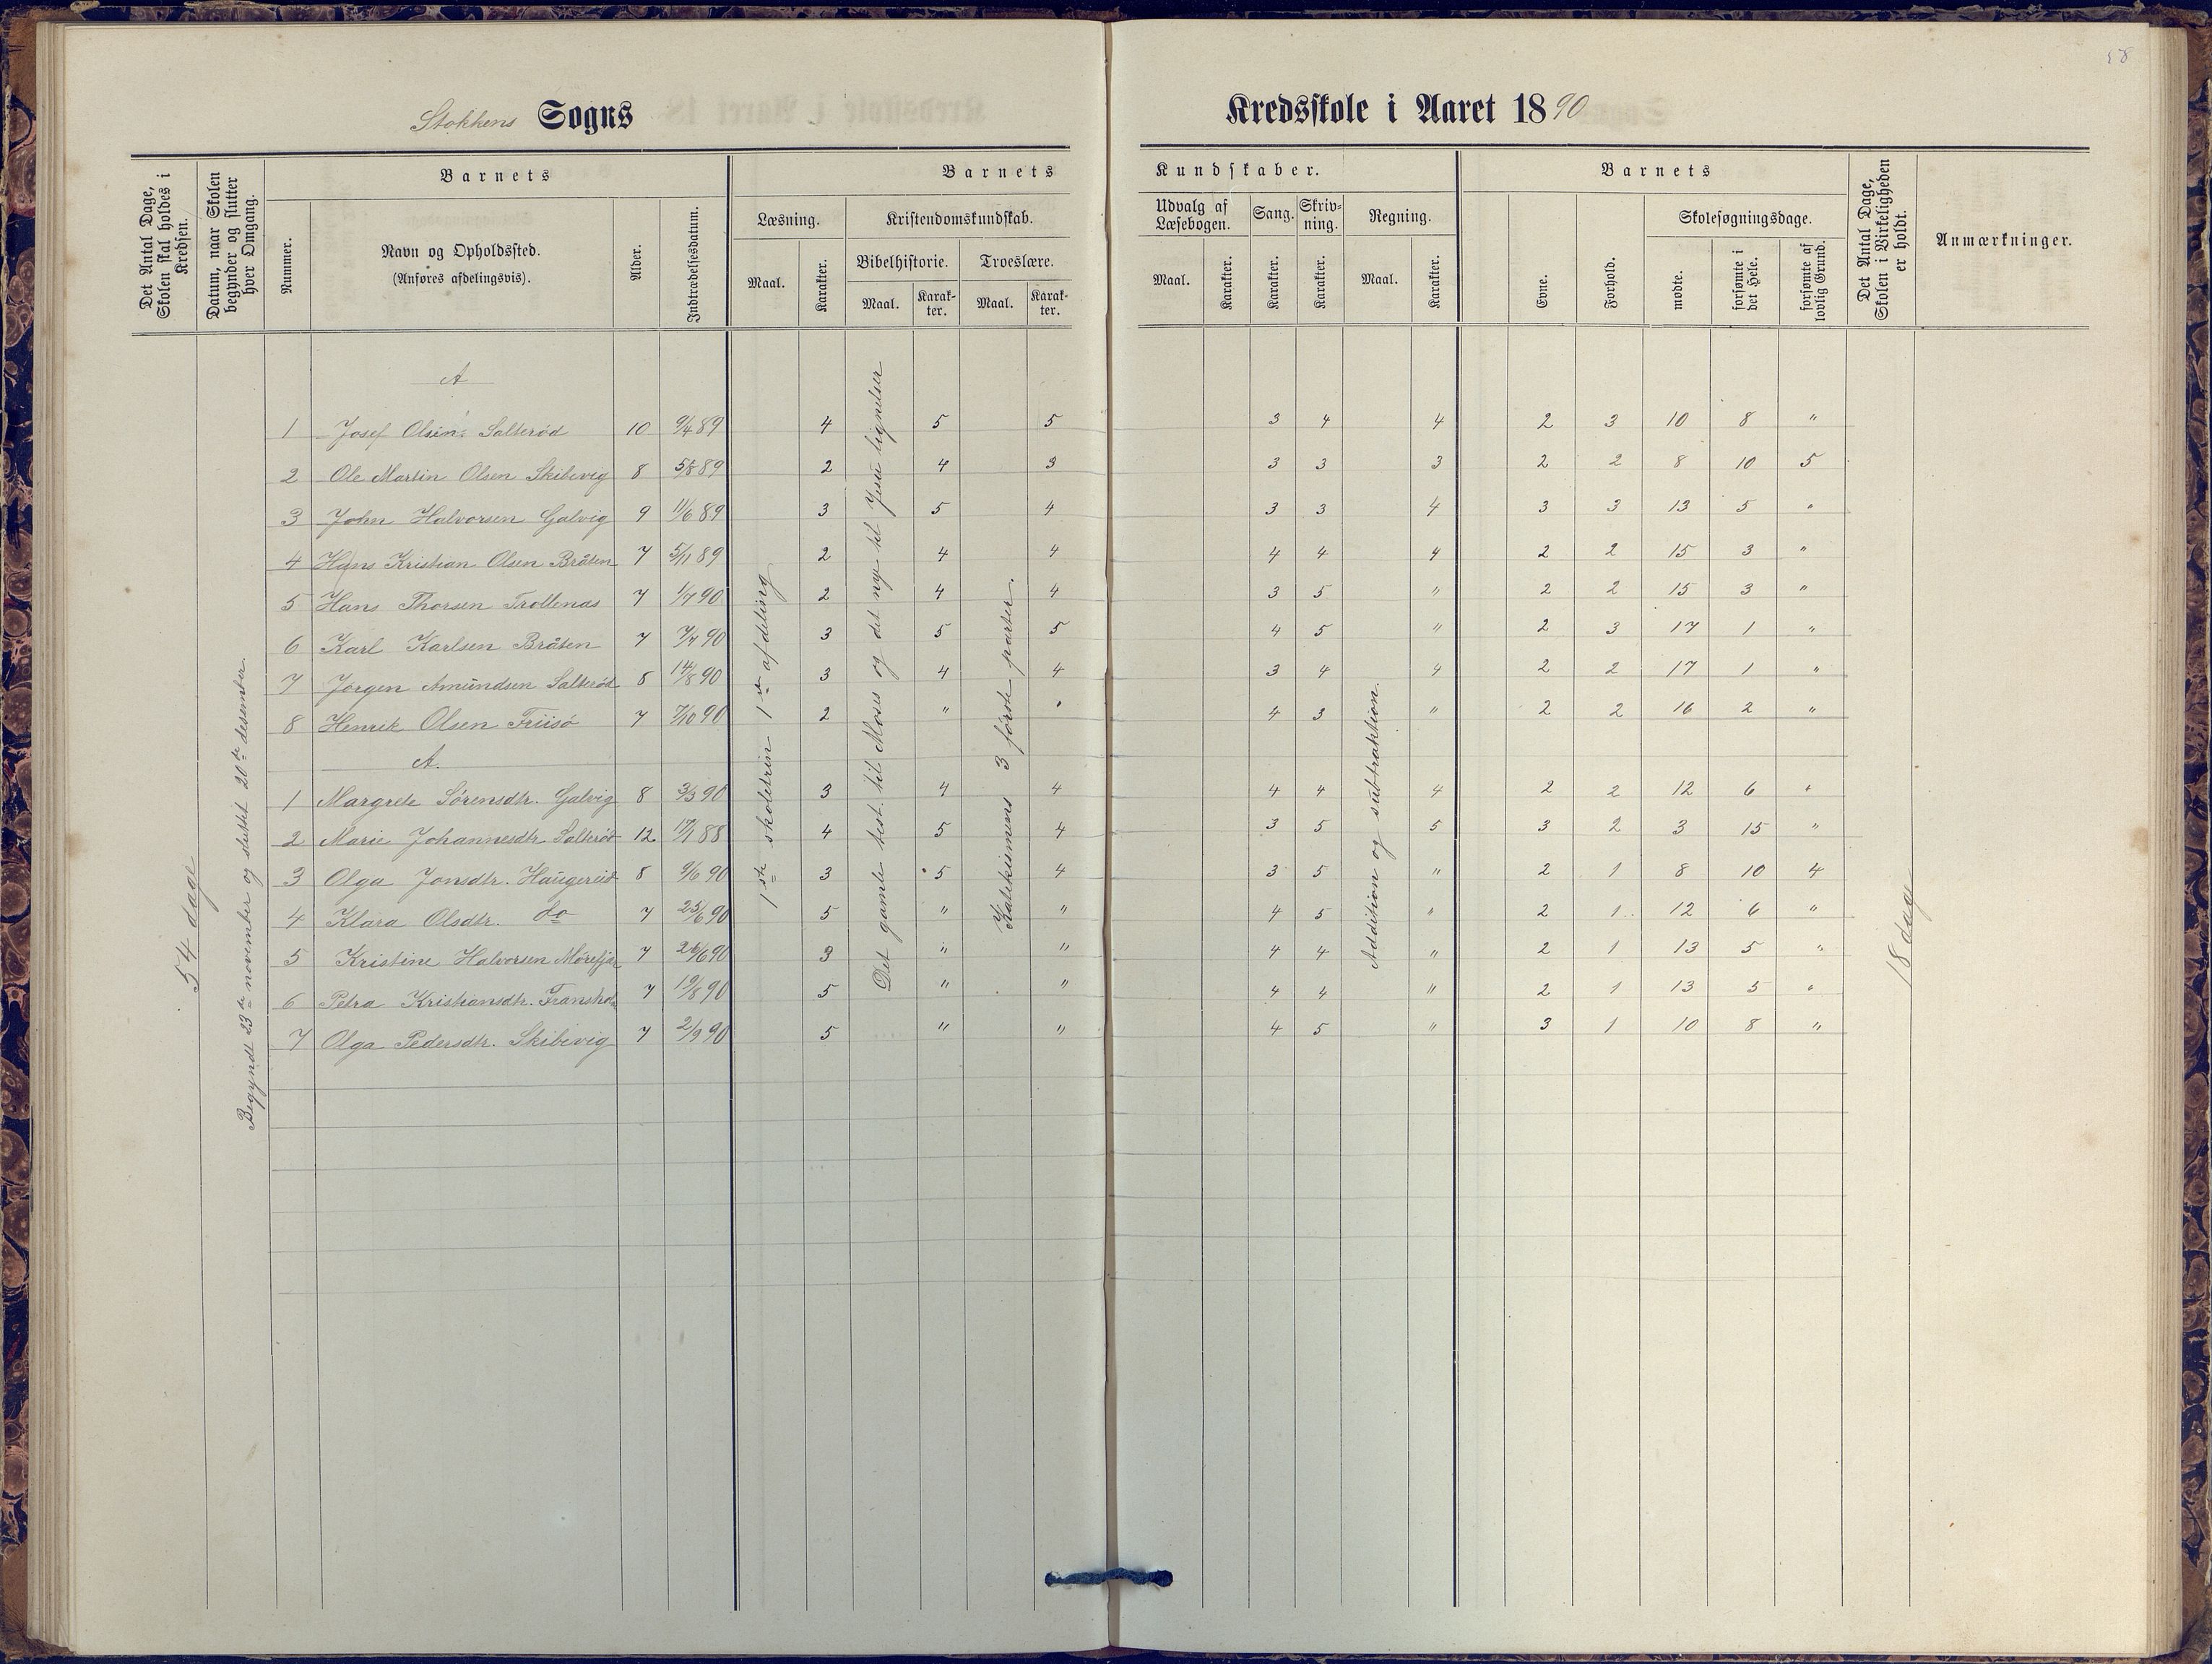 58
Stokkens Sogns Kredsskole i Aaret 1890
Det Antal Dage, Skolen skal holdes i Kredsen.
Datum, naar Skolen begynder og slutter hver Omgang.
Barnets
Nummer.
Navn og Opholdssted.
(Anføres afdelingsvis).
Alder.
Indtrædelsesdatum.
Barnets Kundskaber.
Læsning.
Maal.
Karakter.
Kristendomskundskab.
Bibelhistorie.
Maal.
Karak-
ter.
Troeslære.
Maal.
Karak-
ter.
Udvalg af
Læsebogen.
Maal.
Karakter.
Sang.
Karakter.
Skriv-
ning.
Karakter.
Regning.
Maal.
Karakter.
Barnets
Evne.
Forhold.
Skolesøgningsdage.
mødte.
forsømte i det Hele.
forsømte af lovlig Grund.
Det Antal Dage, Skolen i Virkeligheden er holdt.
Anmærkninger.
54 dage
Begyndt 23de november og sluttet 20de desember.
1ste skoletrin 1ste afdeling
Det gamle test. til Moses og det nye til Jesu lignelser
Katekismens 3 første parter.
Addition og subtraktion.
18 dage
A
1 Josef Olsen Salterød 10 9/4 89 4 5 5 3 4 4 2 3 10 8 "
2 Ole Martin Olsen Skibevig 8 5/8 89 2 4 3 3 3 3 2 2 8 10 5
3 John Halvorsen Galvig 9 11/6 89 3 5 4 3 3 4 3 3 13 5 "
4 Hans Kristian Olsen Bråten 7 5/11 89 2 4 4 4 4 4 2 2 15 3 "
5 Hans Thorsen Trollenæs 7 1/7 90 2 4 4 3 5 " 2 2 15 3 "
6 Karl Karlsen Bråten 7 7/7 90 3 5 5 4 5 " 2 3 17 1 "
7 Jørgen Amundsen Salterød 8 14/8 90 3 4 4 3 4 4 2 2 17 1 "
8 Henrik Olsen Friisø 7 7/10 90 2 " " 4 3 " 2 2 16 2 "
A.
1 Margrete Sørensdtr. Galvig 8 3/3 90 3 4 4 4 4 4 2 2 12 6 "
2 Marie Johannesdtr. Salterød 12 17/1 88 4 5 4 3 5 5 3 2 3 15 "
3 Olga Jonsdtr. Haugerud 8 9/6 90 3 5 4 3 5 " 2 1 8 10 4
4 Klara Olsdtr. do 7 25/6 90 5 " " 4 5 " 2 1 12 6 "
5 Kristine Halvorsen Mørefjær 7 26/6 90 3 " " 4 4 " 2 1 13 5 "
6 Petra Kristiansdtr. 7 19/8 90 5 " " 4 4 " 2 1 13 5 "
7 Olga Pedersdtr. Skibevig 7 2/9 90 5 " " 4 5 " 3 1 10 8 "